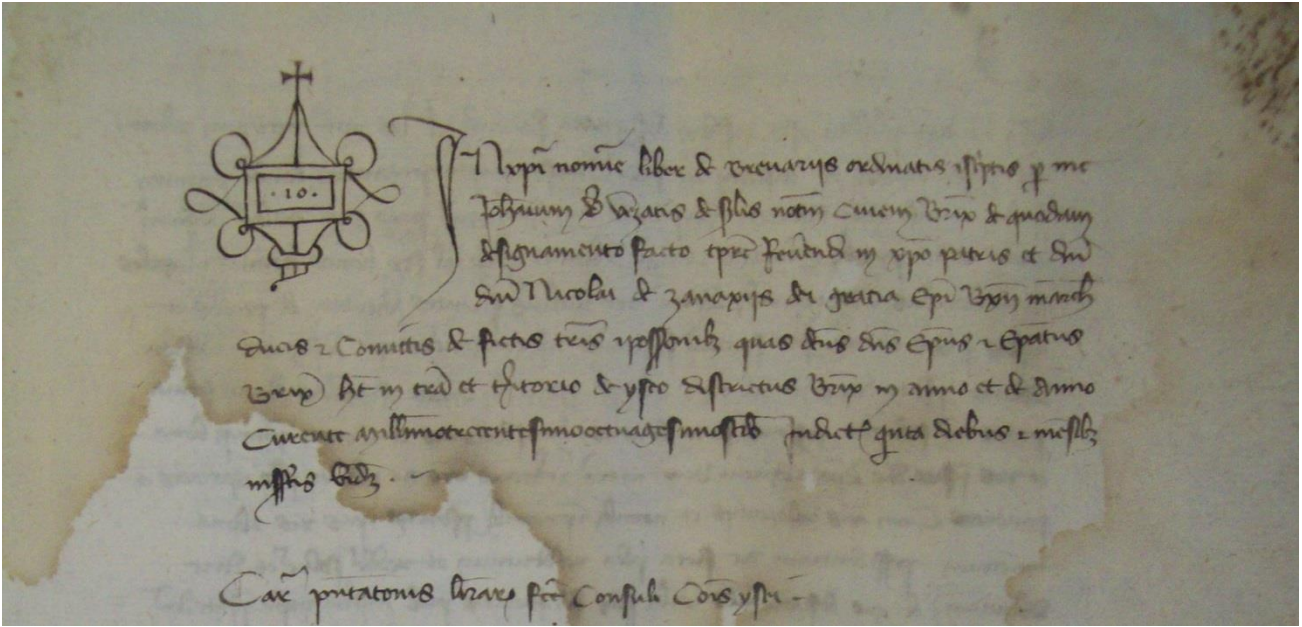 ·10·
IN xpi nomine liber de brevariis ordinatis iscriptis per me
Johannem de Vezatis de Salis notarium Civem Brix de quodam
designamento facto tpre Reverendi in xpo patris et dni
dni Nicolai de zanaxiis dei gratia Epi Brixn march
ducis et Comitis de fictis terris et possessionibus quas dictus dns Epus et Epatus
Brix het in terra et teritorio de yseo districtus Brix in anno et de anno
Curente Millimotrecentesimooctuagesimo Indict quinta diebus et mensibus
infrascriptis videlicet
Car putationis librarum fact Consuli Cois ysei